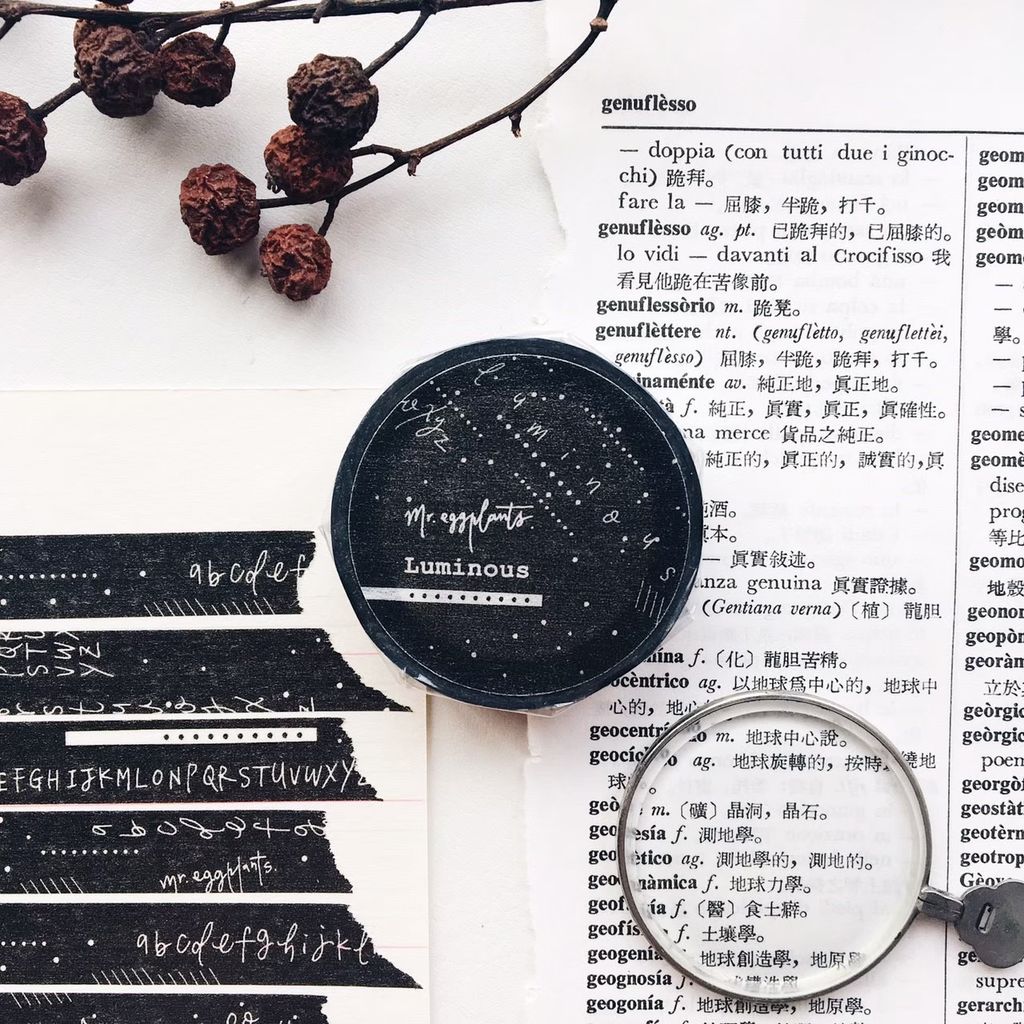 genuflèsso
— doppia (con tutti due i ginoc-
chi) 跪拜。
fare la — 屈膝，半跪，打千。
genuflèsso ag. pt. 已跪拜的，已屈膝的。
lo vidi — davanti al Crocifisso 我
看見他跪在苦像前。
genuflessòrio m. 跪凳。
genuflèttere nt. (genuflètto, genuflettèi,
genuflèsso) 屈膝，半跪，跪拜，打千。
inaménte av. 純正地，眞正地。
tà f. 純正，眞實，眞正，眞確性。
na merce 貨品之純正。
純正的，眞正的，誠實的，眞
酒。
本。
— 眞實敍述。
anza genuina 眞實證據。
(Gentiana verna)〔植〕龍胆
ína f.〔化〕龍胆苦精。
ocèntrico ag. 以地球爲中心的，地球中
心的，地心
geocentri o m. 地球中心說。
geocíc o ag. 地球旋轉的，按時 繞地
球 。
geò m.〔礦〕晶洞，晶石。
geo esía f. 測地學。
geo ètico ag. 測地學的，測地的。
geo nàmica f. 地球力學。
geof ía f.〔醫〕食土癖。
geofís f. 土壤學。
geogenía 地球創造學，地原學。
geognosía f.
geogonía f. 地球創造學，地原學。
geom
geom
geom
geòm
geome
—
—
學。
— p
— p
— s
geome
geomè
dise
prog
等比
geomo
地殼
geonon
geopòn
georàm
立於
geòrgic
geòrgic
poem
georgò
geostàt
geotèrn
geotrop
Gèov
ge
supre
gerarch
w x y z
L u m i n o u s
Mr. eggplants.
Luminous
abcdef
PQR
STU
VWX
YZ
r s t u v w x y z
EFGHIJKMLONPQRSTUVWXYZ
mr. eggplants.
abcdefghijkl